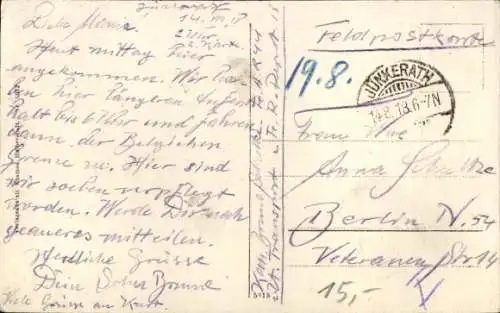 Jünkerath
14. VIII. 18
2 Uhr
2. Karte
Liebe Mama.
Heut mittag hier
angekommen. Wir haben
hier längeren Aufent
halt bis 6 Uhr und fahren
dann der Belgischen
Grenze zu. Hier sind
wir soeben verpflegt
worden. Werde Dir noch
genaueres mitteilen.
Herzliche Grüsse
Dein Sohn Bruno
Viele Grüsse an Kurt.
Feldpostkarte
19.8.
JÜNKERATH
14.8.18.6-7N
Frau Wwe
Anna Schultze
Berlin N. 54
Veteranen Str. 14
15,-